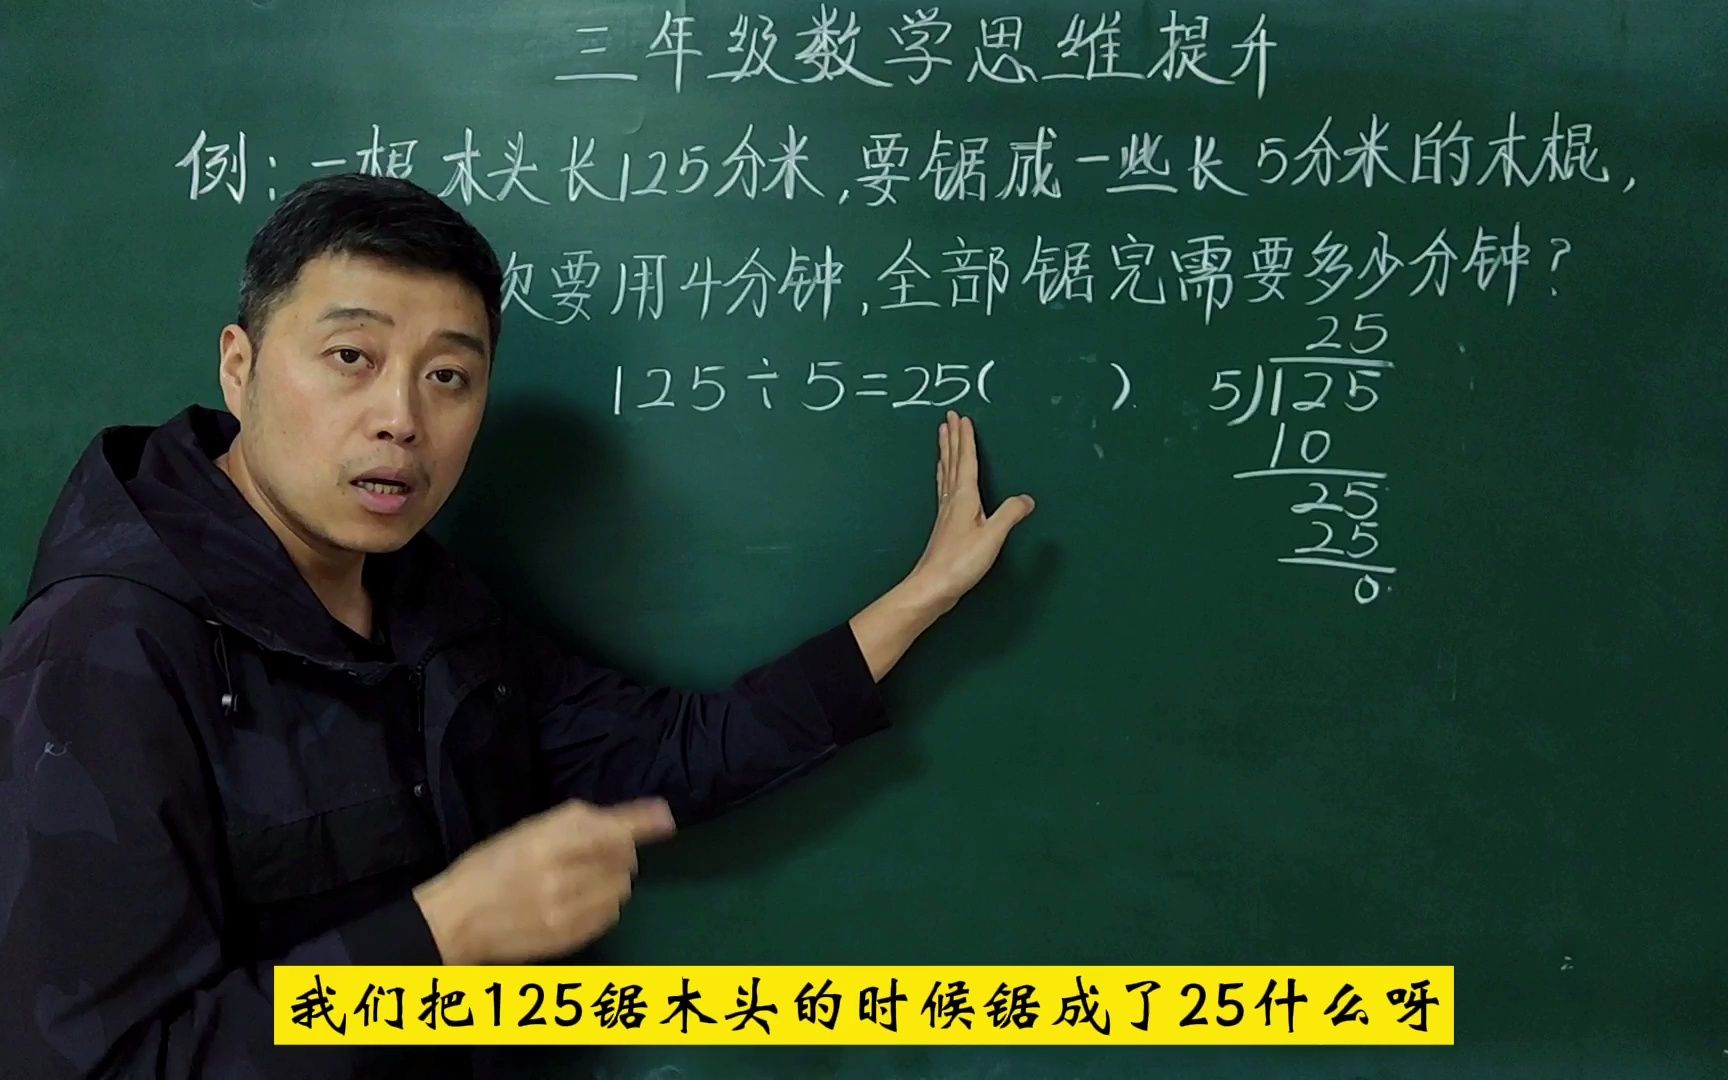 三年级数学思维提升
例:一根木头长125分米,要锯成一些长5分米的木棍,
次要用4分钟,全部锯完需要多少分钟?
125÷5=25( )
25
5)125
10
25
25
0
我们把125锯木头的时候锯成了25什么呀